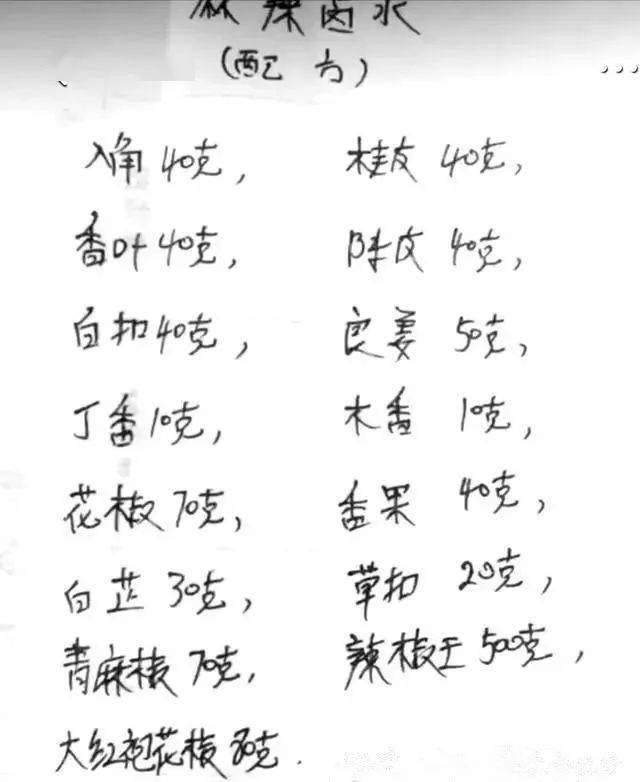 麻辣卤水
(配方)
八角 40克, 桂皮 40克,
香叶 40克, 陈皮 40克,
白扣 40克, 良姜 50克,
丁香 10克, 木香 10克,
花椒 70克, 香果 40克,
白芷 30克, 草扣 20克,
青麻椒 70克, 辣椒王 500克,
大红袍花椒 80克.